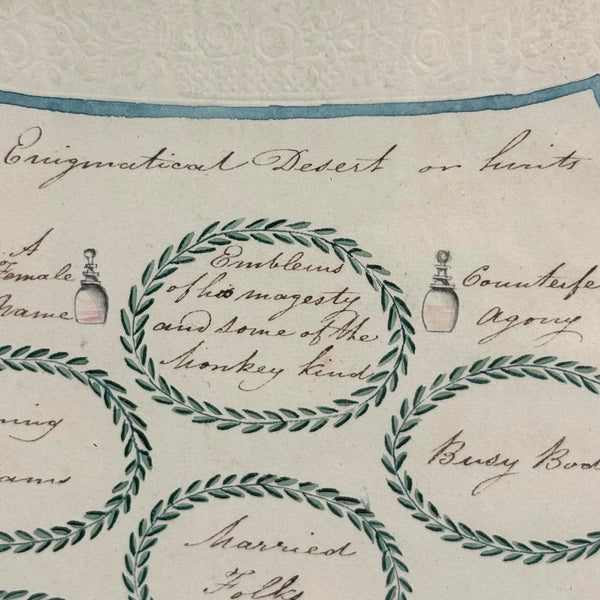 Enigmatical Desert or hints
A
Female
Name
Emblems
of his magesty
and some of the
Monkey kind
Counterfe
agony
ning
ams
Busy Bod
Married
Folks